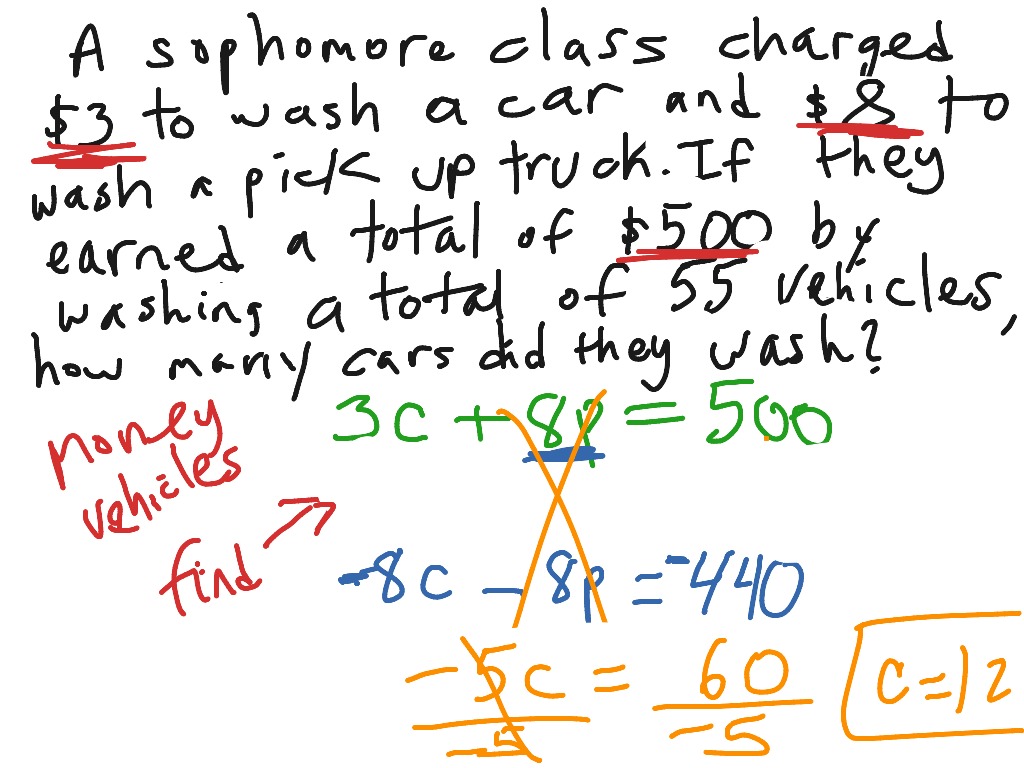 A sophomore class charged
$3 to wash a car and $8 to
wash a pick up truck. If they
earned a total of $500 by
washing a total of 55 vehicles,
how many cars did they wash?
money
vehicles
find
3c + 8p = 500
-8c - 8p = -440
-5c = 60
-5 -5
c=12